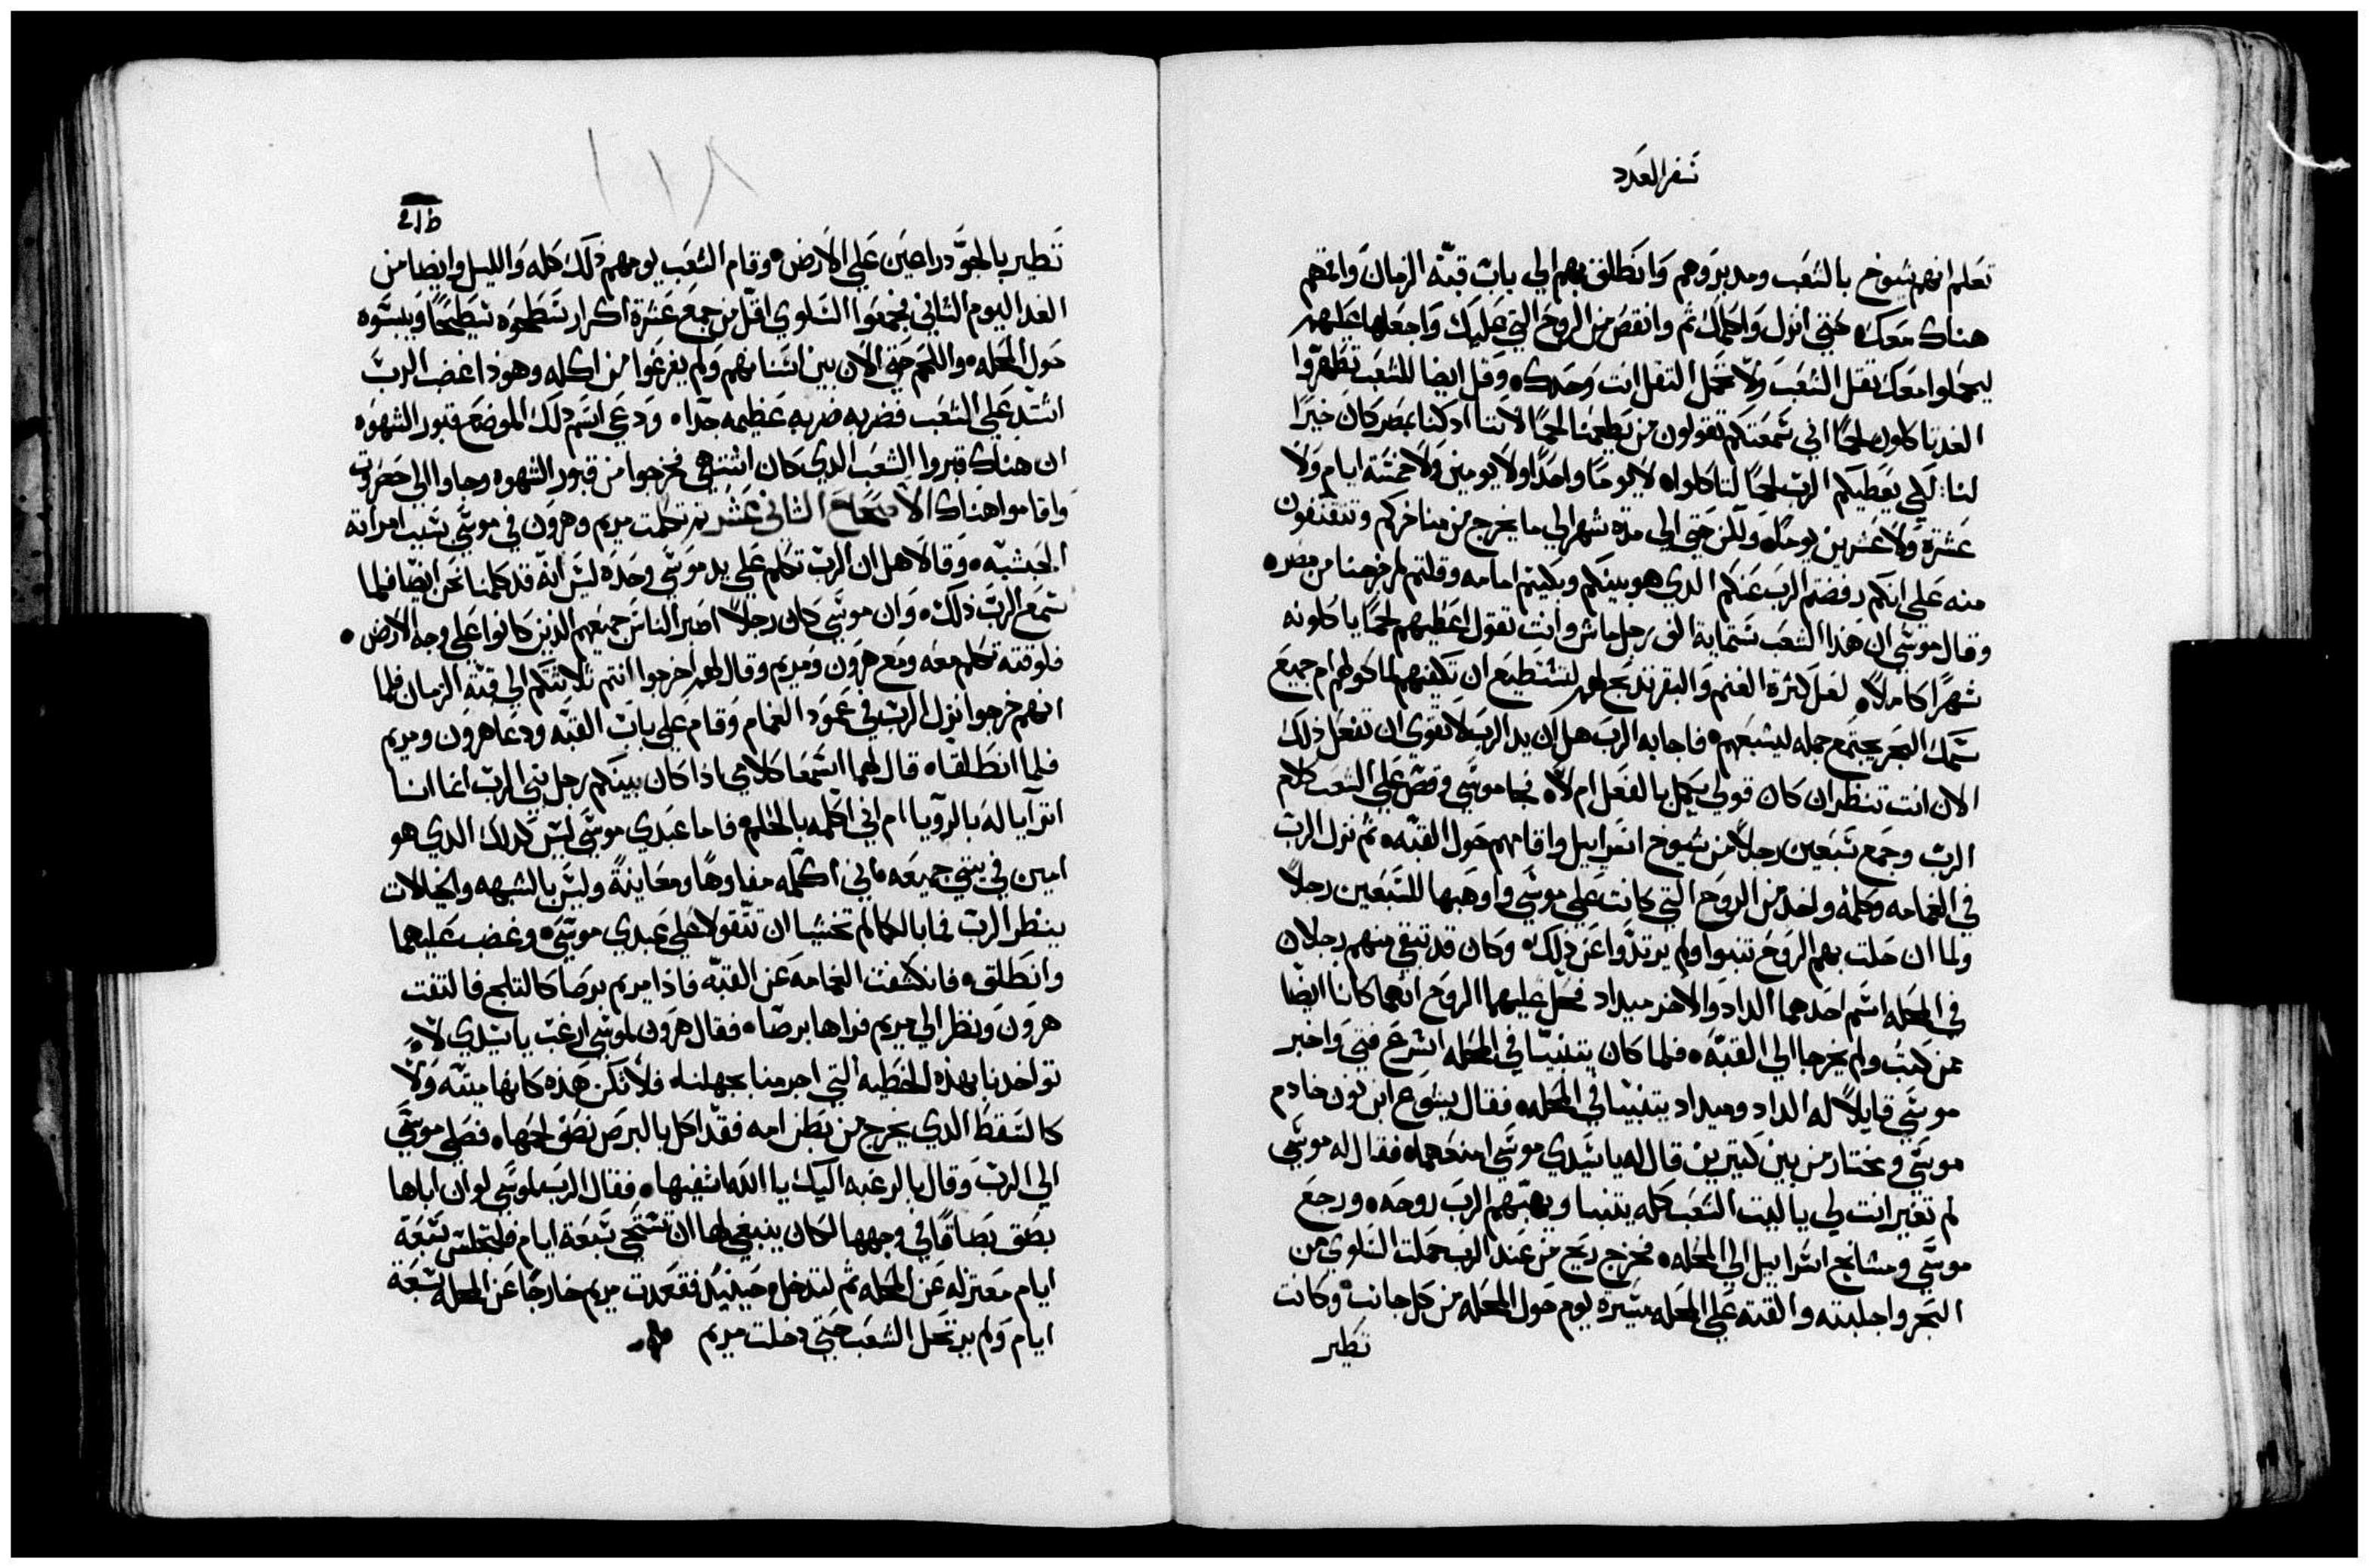 سفر العدد
تعلم انهم شيوخ بالشعب ومدبروهم وانطلق بهم الي باب قبة الزمان واقمهم
هناك معك حتي انزل واكلمك ثم وانقص من الروح التي عليك واجعلها عليهم
ليحملوا معك ثقل الشعب ولا تحمل الثقل انت وحدك وقل ايضا للشعب تطهروا
الغد تاكلون لحما اني سمعتكم تقولون من يطعمنا لحما لاننا اد كنا بمصر كان خيرا
لنا لكي يعطيكم الرب لحما لتاكلوا لا يوما واحدا ولا يومين ولا خمسة ايام ولا
عشرة ولا عشرين يوما ولكن حتي الي مدة شهر الي ما يخرج من مناخركم وتتقنفون
منه علي انكم رفضتم الرب عنكم الدي هو بينكم وبكيتم امامه وقلتم لم خرجنا من مصر
وقال موسي ان هذا الشعب ستماية الف رجل ماش وانت تقول اعطيهم لحما ياكلونه
شهرا كاملا لعل كثرة الغنم والبقر تدبح لهم لتستطيع ان تكفيهم لماكولهم ام جميع
سمك البحر يجتمع جمله ليشبعهم فاجابه الرب هل ان يد الرب لا تقوي ان تفعل ذلك
الان انت تنظر ان كان قولي يكمل بالفعل ام لا فجا موسي وقص علي الشعب كلام
الرب وجمع سبعين رجلا من شيوخ اسراييل واقامهم حول القبه ثم نزل الرب
في الغمامه وكلمه واخد من الروح التي كانت علي موسي واوهبها للسبعين رجلا
ولما ان حلت بهم الروح تنبوا ولم يرتدوا عن ذلك وكان قد تبقي منهم رجلان
في المحله اسم احدهما الداد والاخر ميداد فحل عليهما الروح انهما كانا ايضا
من كتب ولم يخرجا الي القبه فلما كان يتنبيا في المحله اسرع فتي واخبر
موسي قايلا له الداد وميداد يتنبيا في المحله فقال يشوع ابن نون خادم
موسي ومختار من بين كتيرين قال له يا سيدي موسي امنعهما فقال له موسي
لم تغير انت لي يا ليت الشعب كله يتنبا ويهبهم الرب روحه ورجع
موسي ومشايخ اسراييل الي المحله فخرج ريح من عند الرب حملت السلوي من
البحر واجلبته والقته علي المحله مسيرة يوم حول المحله من كل جانب وكانت
تطير
١١٨
تطير بالجو دراعين علي الارض وقام الشعب يومهم ذلك كله والليل وايضا من
الغد اليوم الثاني فجمعوا السلوي اقل من جمع عشرة اكرار سطحوه تسطيحا ويبسوه
حول المحله واللحم حتي الان بين اسنانهم ولم يفرغوا من اكله وهوذا غضب الرب
اشتد علي الشعب فضربه ضربه عظيمه جدا ودعي اسم دلك الموضع قبور الشهوه
ان هناك قبروا الشعب الدي كان اشتهي فخرجوا من قبور الشهوه وجاوا الي حضروت
واقاموا هناك الاصحاح الثاني عشر ثم تكلمت مريم وهرون في موسي بسبب امراته
الحبشيه وقالا هل ان الرب تكلم علي يد موسي وحده ليس انه قد كلمنا نحن ايضا فلما
سمع الرب ذلك وان موسي كان رجلا اصبر الناس جميعهم الذين كانوا علي وجه الارض
فلوقته تكلم معه ومع هرون ومريم وقال لهم اخرجوا انتم ثلاثتكم الي قبة الزمان فلما
انهم خرجوا نزل الرب في عمود الغمام وقام علي باب القبه ودعا هرون ومريم
فلما انطلقا قال لهما اسمعا كلامي اذا كان بينكم رجل نبي الرب انما انا
اترايا له بالرويا ام اني اكلمه بالحلم فاما عبدي موسي ليس كدلك الدي هو
امين في بيتي جميعه فاني اكلمه مفاوها ومعاينة وليس بالشبهه والخيالات
ينظر الرب فما بالكما لم تخشيا ان تتقولا علي عبدي موسي وغضب عليهما
وانطلق فانكشفت الغمامه عن القبه فاذا مريم برصا كالتلج فالتفت
هرون ونظر الي مريم فراها برصا فقال هرون لموسي ارغب يا سيدي لا
تواخدنا بهذه الخطيه التي اجرمنا بجهلنا فلا تكن هذه كانها ميته ولا
كالسقط الدي يخرج من بطن امه فقد اكل بالبرص نصف لحمها فصلي موسي
الي الرب وقال بالرغبه اليك يا الله اشفيها فقال الرب لموسي لو ان اباها
بصق بصاقا في وجهها لكان ينبغي لها ان تستحي سبعة ايام فلتجلس سبعة
ايام معتزله عن المحله ثم لتدخل وحينيد فقعدت مريم خارجا عن المحله سبعة
ايام ولم يرتحل الشعب حتي دخلت مريم